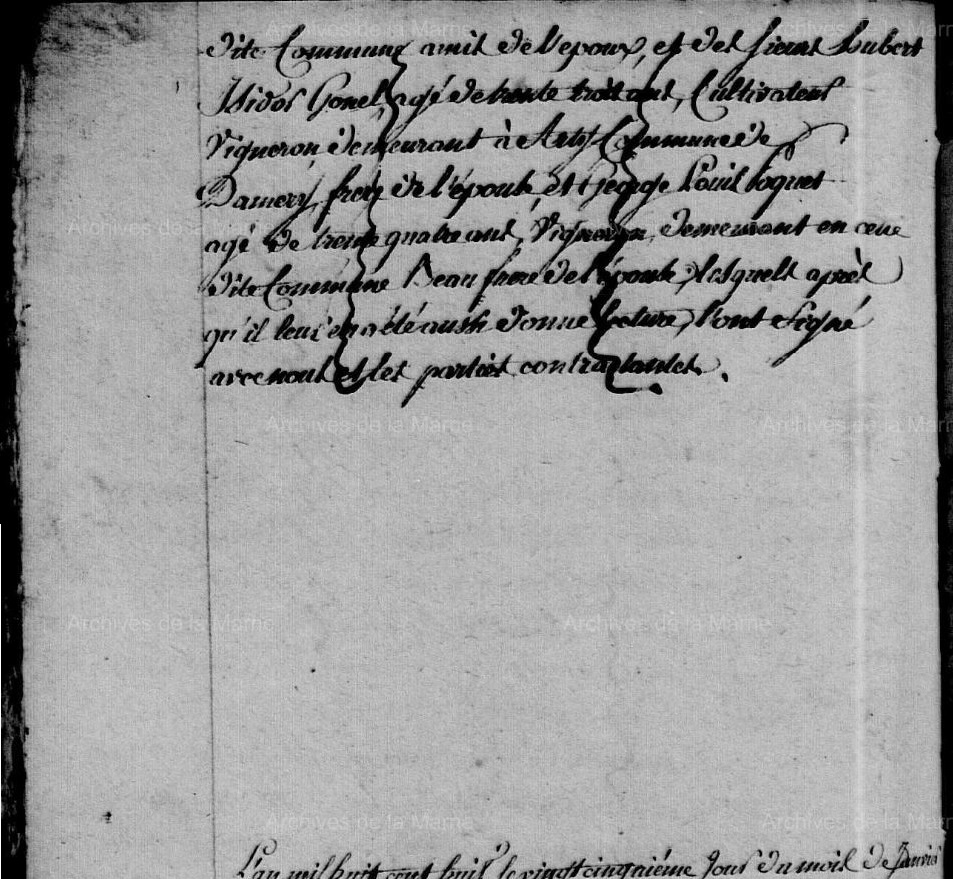 dite Commune amis de l'epoux, et des sieurs Hubert
Isidor Gonel, agé de trente trois ans, Cultivateur
Vigneron demeurant à Arty Commune de
Damery, frere de l'épouse, et George Louis Poquet
agé de trente quatre ans, Vigneron, demeurant en cette
dite Commune Beau frere de l'épouse, lesquels après
qu'il leur en a été aussi donné lecture, l'ont signé
avec nous et les parties contractantes.
L'an mil huit cent huit le vingt cinquième jour du mois de Janvier
Archives de la Marne